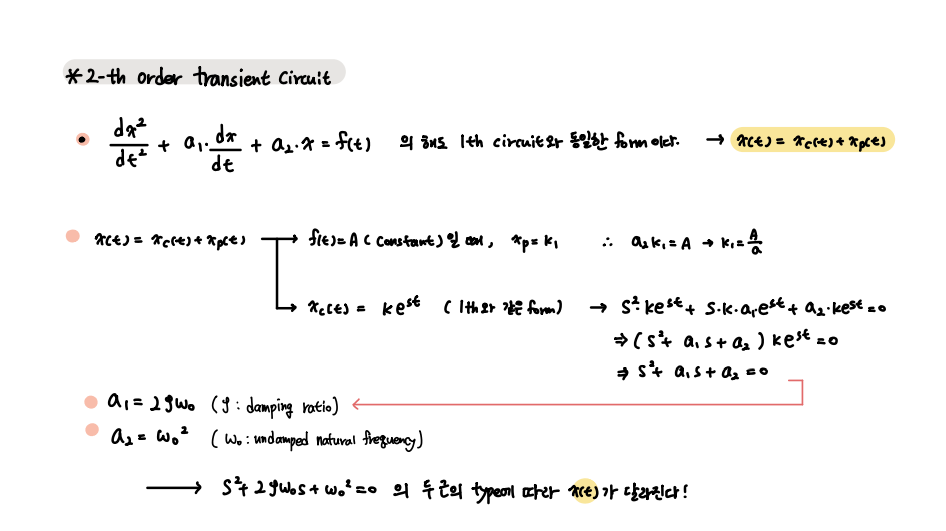 * 2-th order transient circuit
• dx²/dt² + a₁·dx/dt + a₂·x = f(t) 의 해도 1th circuit와 동일한 form이다. → x(t) = x_c(t) + x_p(t)
x(t) = x_c(t) + x_p(t) → f(t) = A ( constant ) 일 때, x_p = k₁ ∴ a₂k₁ = A → k₁ = A/a
↳ x_c(t) = ke^st ( 1th와 같은 form ) → s²·ke^st + s·k·a₁e^st + a₂·ke^st = 0
⇒ ( s² + a₁s + a₂ ) ke^st = 0
⇒ s² + a₁s + a₂ = 0
a₁ = 2ζω₀ ( ζ : damping ratio )
a₂ = ω₀² ( ω₀ : undamped natural frequency )
→ s² + 2ζω₀s + ω₀² = 0 의 두 근의 type에 따라 x(t)가 달라진다!